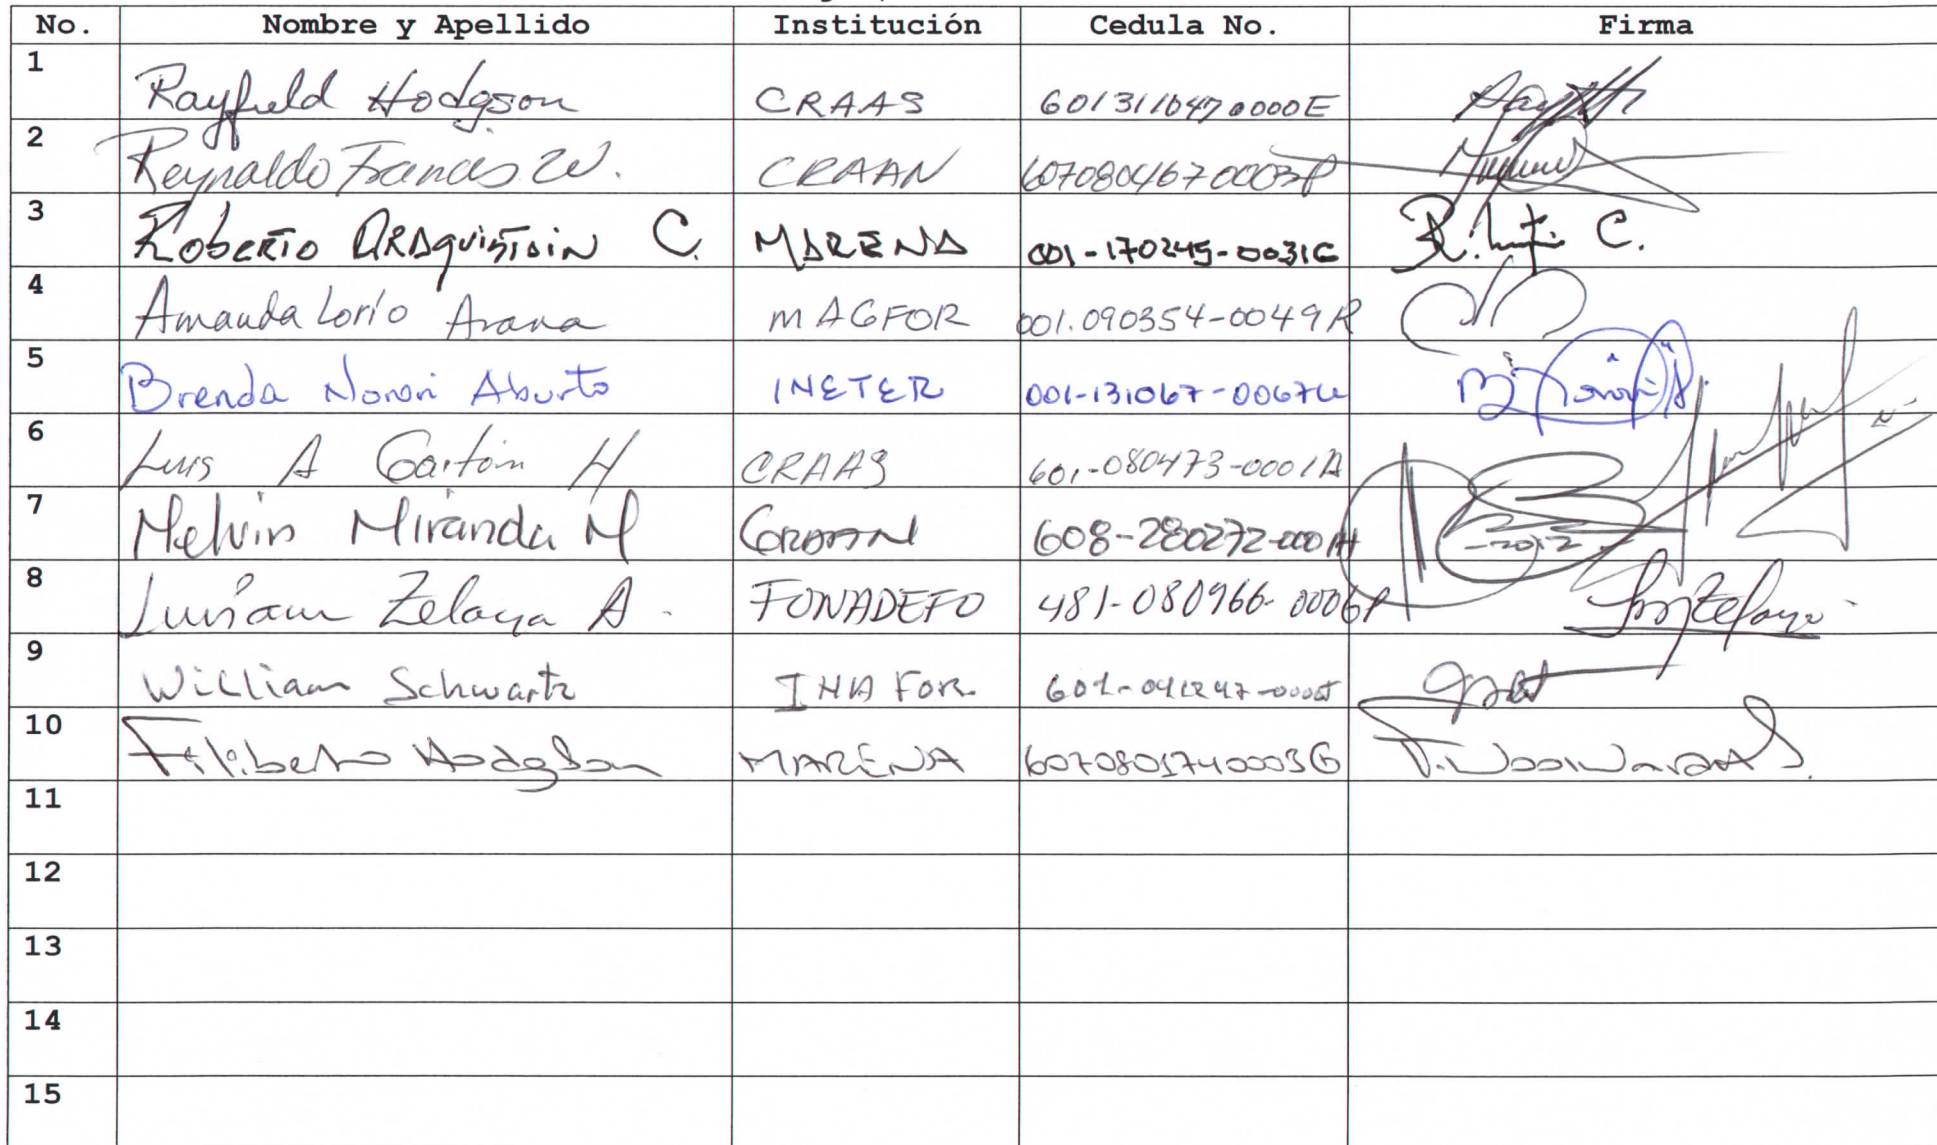 No. Nombre y Apellido Institución Cedula No. Firma
1 Rayfield Hodgson CRAAS 6013110470000E
2 Reynaldo Francis W. CRAAN 6070804670003P
3 Roberto ARAquistain C. MARENA 001-170245-0031C
4 Amanda Lorío Arana MAGFOR 001.090354-0049R
5 Brenda Norori Aburto INETER 001-131067-0067U
6 Luis A H CRAAS 601-080473-0001A
7 Melvin Miranda M 608-280272-0001H
8 Zelaya A. FONADEFO 481-080966-0006P
9 William Schwartz INAFOR
10 Filiberto MARENA 6070801740003G
11
12
13
14
15